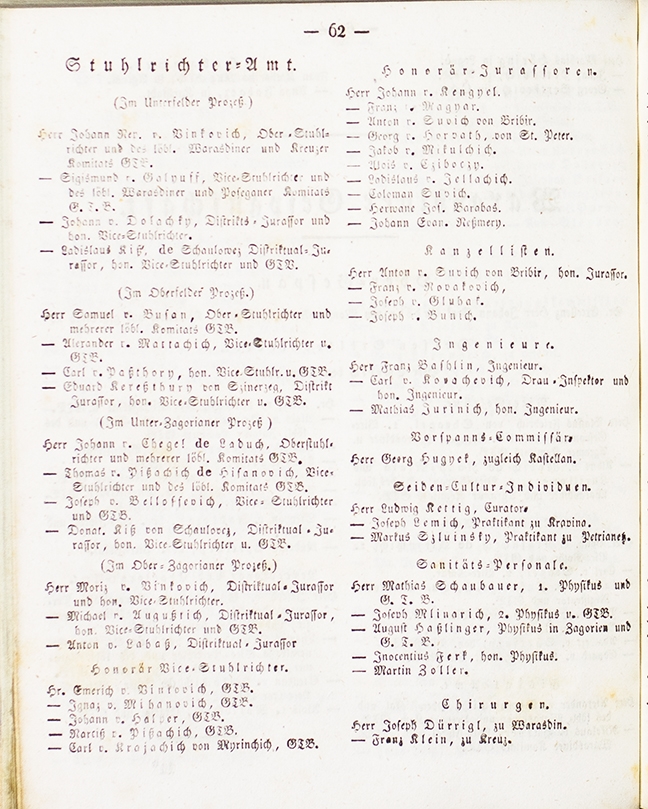 — 62 —
Stuhlrichter-Amt.
(Im Unterfelder Prozeß.)
Herr Johann Nep. v. Vinkovich, Ober-Stuhl-
richter und des löbl. Warasdiner und Kreuzer
Komitats GTB.
— Sigismund v. Galyuff, Vice-Stuhlrichter und
des löbl. Warasdiner und Poseganer Komitats
G. T. B.
— Johann v. Dolachky, Distrikts-Jurassor und
hon. Vice-Stuhlrichter.
— Ladislaus Kiß, de Schaulowez Distriktual-Ju-
rassor, hon. Vice-Stuhlrichter und GTB.
(Im Oberfelder Prozeß.)
Herr Samuel v. Busan, Ober-Stuhlrichter und
mehrerer löbl. Komitats GTB.
— Alexander v. Mattachich, Vice-Stuhlrichter u.
GTB.
— Carl v. Paßthory, hon. Vice-Stuhlr. u. GTB.
— Eduard Kereßthury von Szinerzeg, Distrikt
Jurassor, hon. Vice-Stuhlrichter u. GTB.
(Im Unter-Zagorianer Prozeß)
Herr Johann v. Chegel de Laduch, Oberstuhl-
richter und mehrerer löbl. Komitats GTB.
— Thomas v. Pißachich de Hisanovich, Vice-
Stuhlrichter und des löbl. Komitats GTB.
— Joseph v. Bellossevich, Vice-Stuhlrichter
und GTB.
— Donat. Kiß von Schaulovez, Distriktual-Ju-
rassor, hon. Vice-Stuhlrichter u. GTB.
(Im Ober-Zagorianer Prozeß.)
Herr Moriz v. Vinkovich, Distriktual-Jurassor
und hon. Vice-Stuhlrichter.
— Michael v. Augußtich, Distriktual-Jurassor,
hon. Vice-Stuhlrichter und GTB.
— Anton v. Labaß, Distriktual-Jurassor
Honorär Vice-Stuhlrichter.
Hr. Emerich v. Vinkovich, GTB.
— Ignaz v. Mihanovich, GTB.
— Johann v. Halper, GTB.
— Narciß v. Pißachich, GTB.
— Carl v. Krajachich von Myrinchich, GTB.
Honorär-Jurassoren.
Herr Johann v. Kengyel.
— Franz v. Magyar.
— Anton v. Suvich von Bribir.
— Georg v. Horvath, von St. Peter.
— Jakob v. Mikulchich.
— Alois v. Cziboczy.
— Ladislaus v. Jellachich.
— Coloman Suvich.
— Hermane Jos. Barabas.
— Johann Evan. Reßmery.
Kanzellisten.
Herr Anton v. Suvich von Bribir, hon. Jurassor.
— Franz v. Novakovich,
— Joseph v. Glubak.
— Joseph v. Bunich.
Ingenieure.
Herr Franz Bashlin, Ingenieur.
— Carl v. Kovachevich, Drau-Inspektor und
hon. Ingenieur.
— Mathias Jurinich, hon. Ingenieur.
Vorspanns-Commissär.
Herr Georg Hugyek, zugleich Kastellan.
Seiden-Cultur-Individuen.
Herr Ludwig Kettig, Curator.
— Joseph Lemich, Praktikant zu Krapina.
— Markus Szluinsky, Praktikant zu Petrianez.
Sanitäts-Personale.
Herr Mathias Schaubauer, 1. Physikus und
G. T. B.
— Joseph Mlinarich, 2. Physikus u. GTB.
— August Haßlinger, Physikus in Zagorien und
G. T. B.
— Inocentius Ferk, hon. Physikus.
— Martin Zoller.
Chirurgen.
Herr Joseph Dürrigl, zu Warasdin.
— Franz Klein, zu Kreuz.